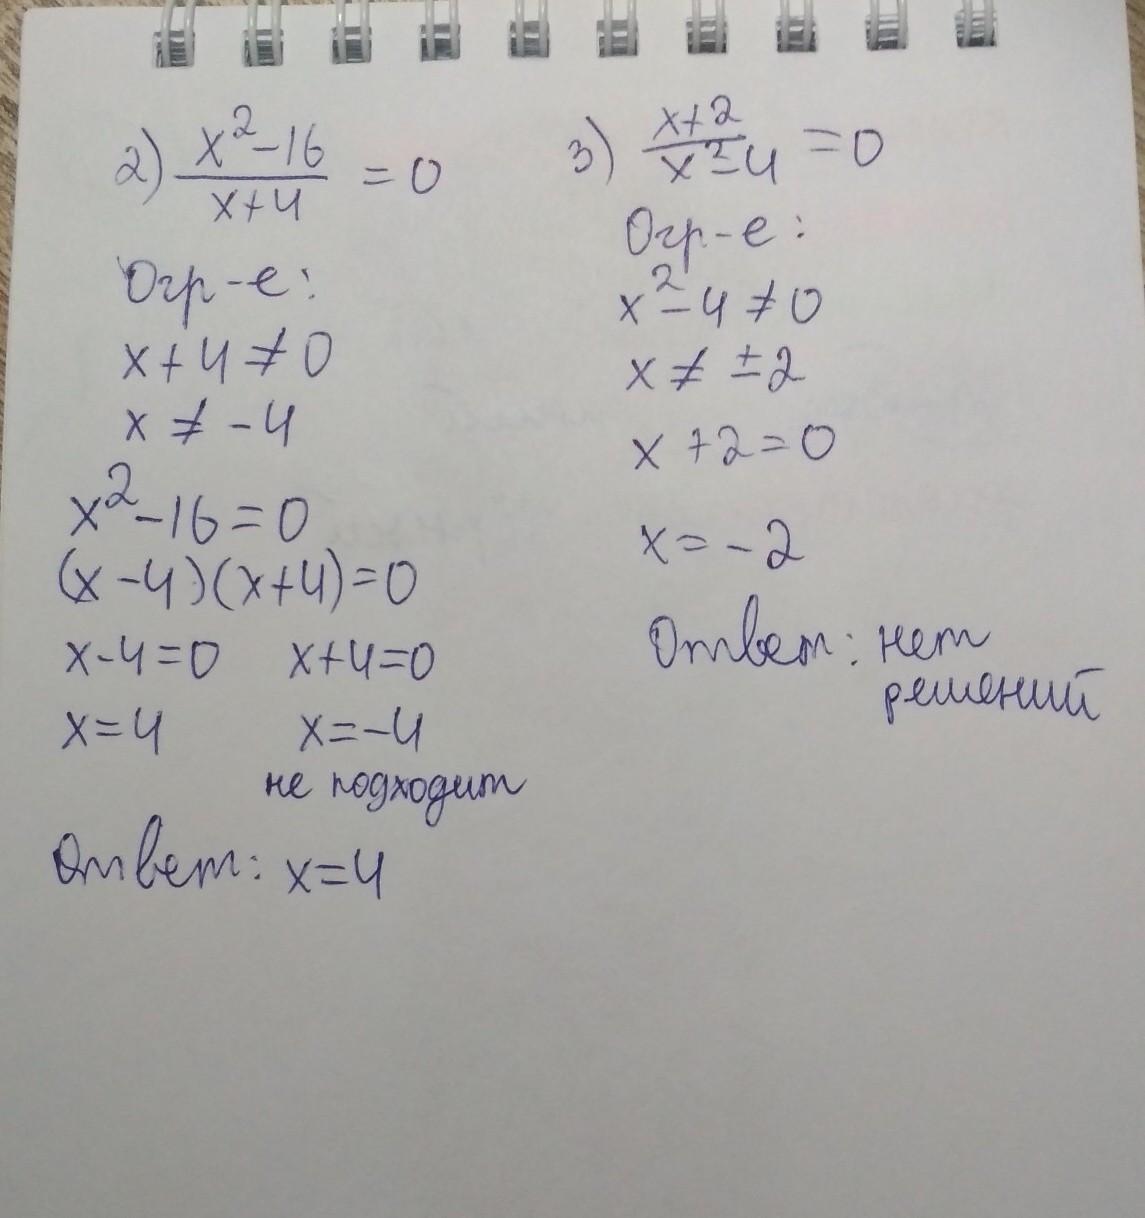 2) x²-16 / x+4 = 0
Огр-е:
x+4≠0
x ≠ -4
x²-16=0
(x-4)(x+4)=0
x-4=0 x+4=0
x=4 x=-4
не подходит
Ответ: x=4
3) x+2 / x²-4 = 0
Огр-е:
x²-4≠0
x ≠ ±2
x+2=0
x=-2
Ответ: нет
решений